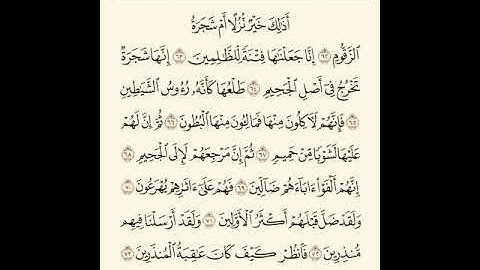 أَذَٰلِكَ خَيْرٌ نُّزُلًا أَمْ شَجَرَةُ
ٱلزَّقُّومِ ٦٢ إِنَّا جَعَلْنَـٰهَا فِتْنَةً لِّلظَّـٰلِمِينَ ٦٣ إِنَّهَا شَجَرَةٌ
تَخْرُجُ فِىٓ أَصْلِ ٱلْجَحِيمِ ٦٤ طَلْعُهَا كَأَنَّهُۥ رُءُوسُ ٱلشَّيَـٰطِينِ
٦٥ فَإِنَّهُمْ لَـَٔاكِلُونَ مِنْهَا فَمَالِـُٔونَ مِنْهَا ٱلْبُطُونَ ٦٦ ثُمَّ إِنَّ لَهُمْ
عَلَيْهَا لَشَوْبًا مِّنْ حَمِيمٍ ٦٧ ثُمَّ إِنَّ مَرْجِعَهُمْ لَإِلَى ٱلْجَحِيمِ ٦٨
إِنَّهُمْ أَلْفَوْا۟ ءَابَآءَهُمْ ضَآلِّينَ ٦٩ فَهُمْ عَلَىٰٓ ءَاثَـٰرِهِمْ يُهْرَعُونَ ٧٠
وَلَقَدْ ضَلَّ قَبْلَهُمْ أَكْثَرُ ٱلْأَوَّلِينَ ٧١ وَلَقَدْ أَرْسَلْنَا فِيهِم
مُّنذِرِينَ ٧٢ فَٱنظُرْ كَيْفَ كَانَ عَـٰقِبَةُ ٱلْمُنذَرِينَ ٧٣